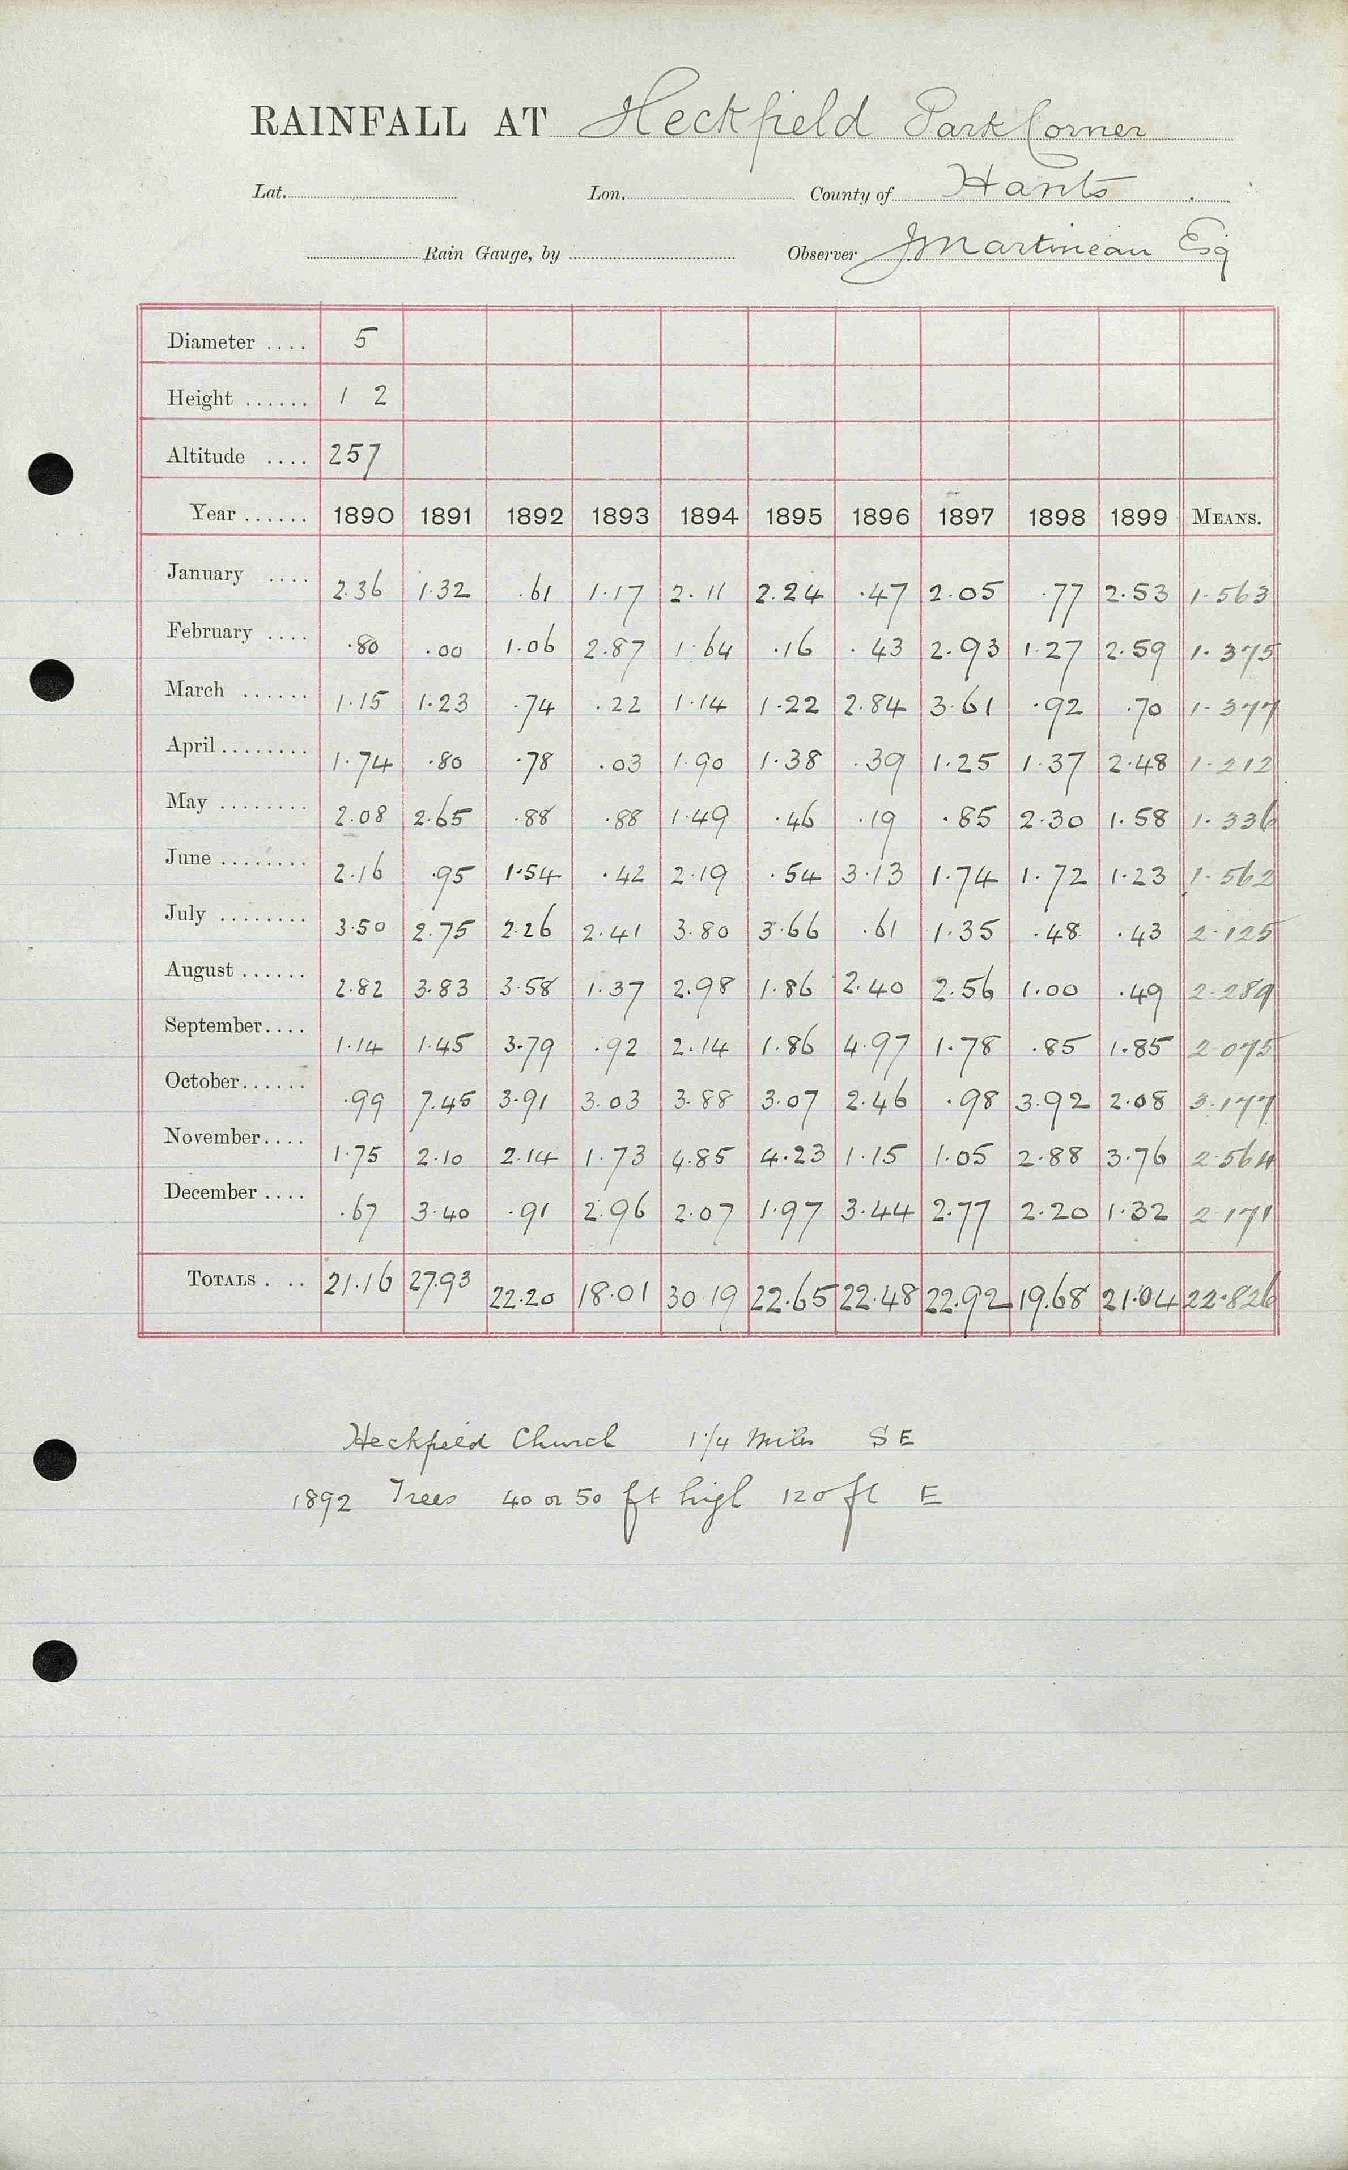 RAINFALL AT Heckfield Park Corner
Lat. Lon. County of Hants
Rain Gauge, by Observer J Martineau Esq
Diameter .... 5
Height ...... 1 2
Altitude .... 257
Year ...... 1890 1891 1892 1893 1894 1895 1896 1897 1898 1899 MEANS.
January .... 2.36 1.32 .61 1.17 2.11 2.24 .47 2.05 .77 2.53 1.563
February .... .80 .00 1.06 2.87 1.64 .16 .43 2.93 1.27 2.59 1.375
March ...... 1.15 1.23 .74 .22 1.14 1.22 2.84 3.61 .92 .70 1.377
April ........ 1.74 .80 .78 .03 1.90 1.38 .39 1.25 1.37 2.48 1.212
May ........ 2.08 2.65 .88 .88 1.49 .46 .19 .85 2.30 1.58 1.336
June ........ 2.16 .95 1.54 .42 2.19 .54 3.13 1.74 1.72 1.23 1.562
July ........ 3.50 2.75 2.26 2.41 3.80 3.66 .61 1.35 .48 .43 2.125
August ...... 2.82 3.83 3.58 1.37 2.98 1.86 2.40 2.56 1.00 .49 2.289
September .... 1.14 1.45 3.79 .92 2.14 1.86 4.97 1.78 .85 1.85 2.075
October ...... .99 7.45 3.91 3.03 3.88 3.07 2.46 .98 3.92 2.08 3.177
November .... 1.75 2.10 2.14 1.73 4.85 4.23 1.15 1.05 2.88 3.76 2.564
December .... .67 3.40 .91 2.96 2.07 1.97 3.44 2.77 2.20 1.32 2.171
TOTALS . .. 21.16 27.93 22.20 18.01 30.19 22.65 22.48 22.92 19.68 21.04 22.826
Heckfield Church 1 1/4 miles SE
1892 Trees 40 or 50 ft high 120 ft E